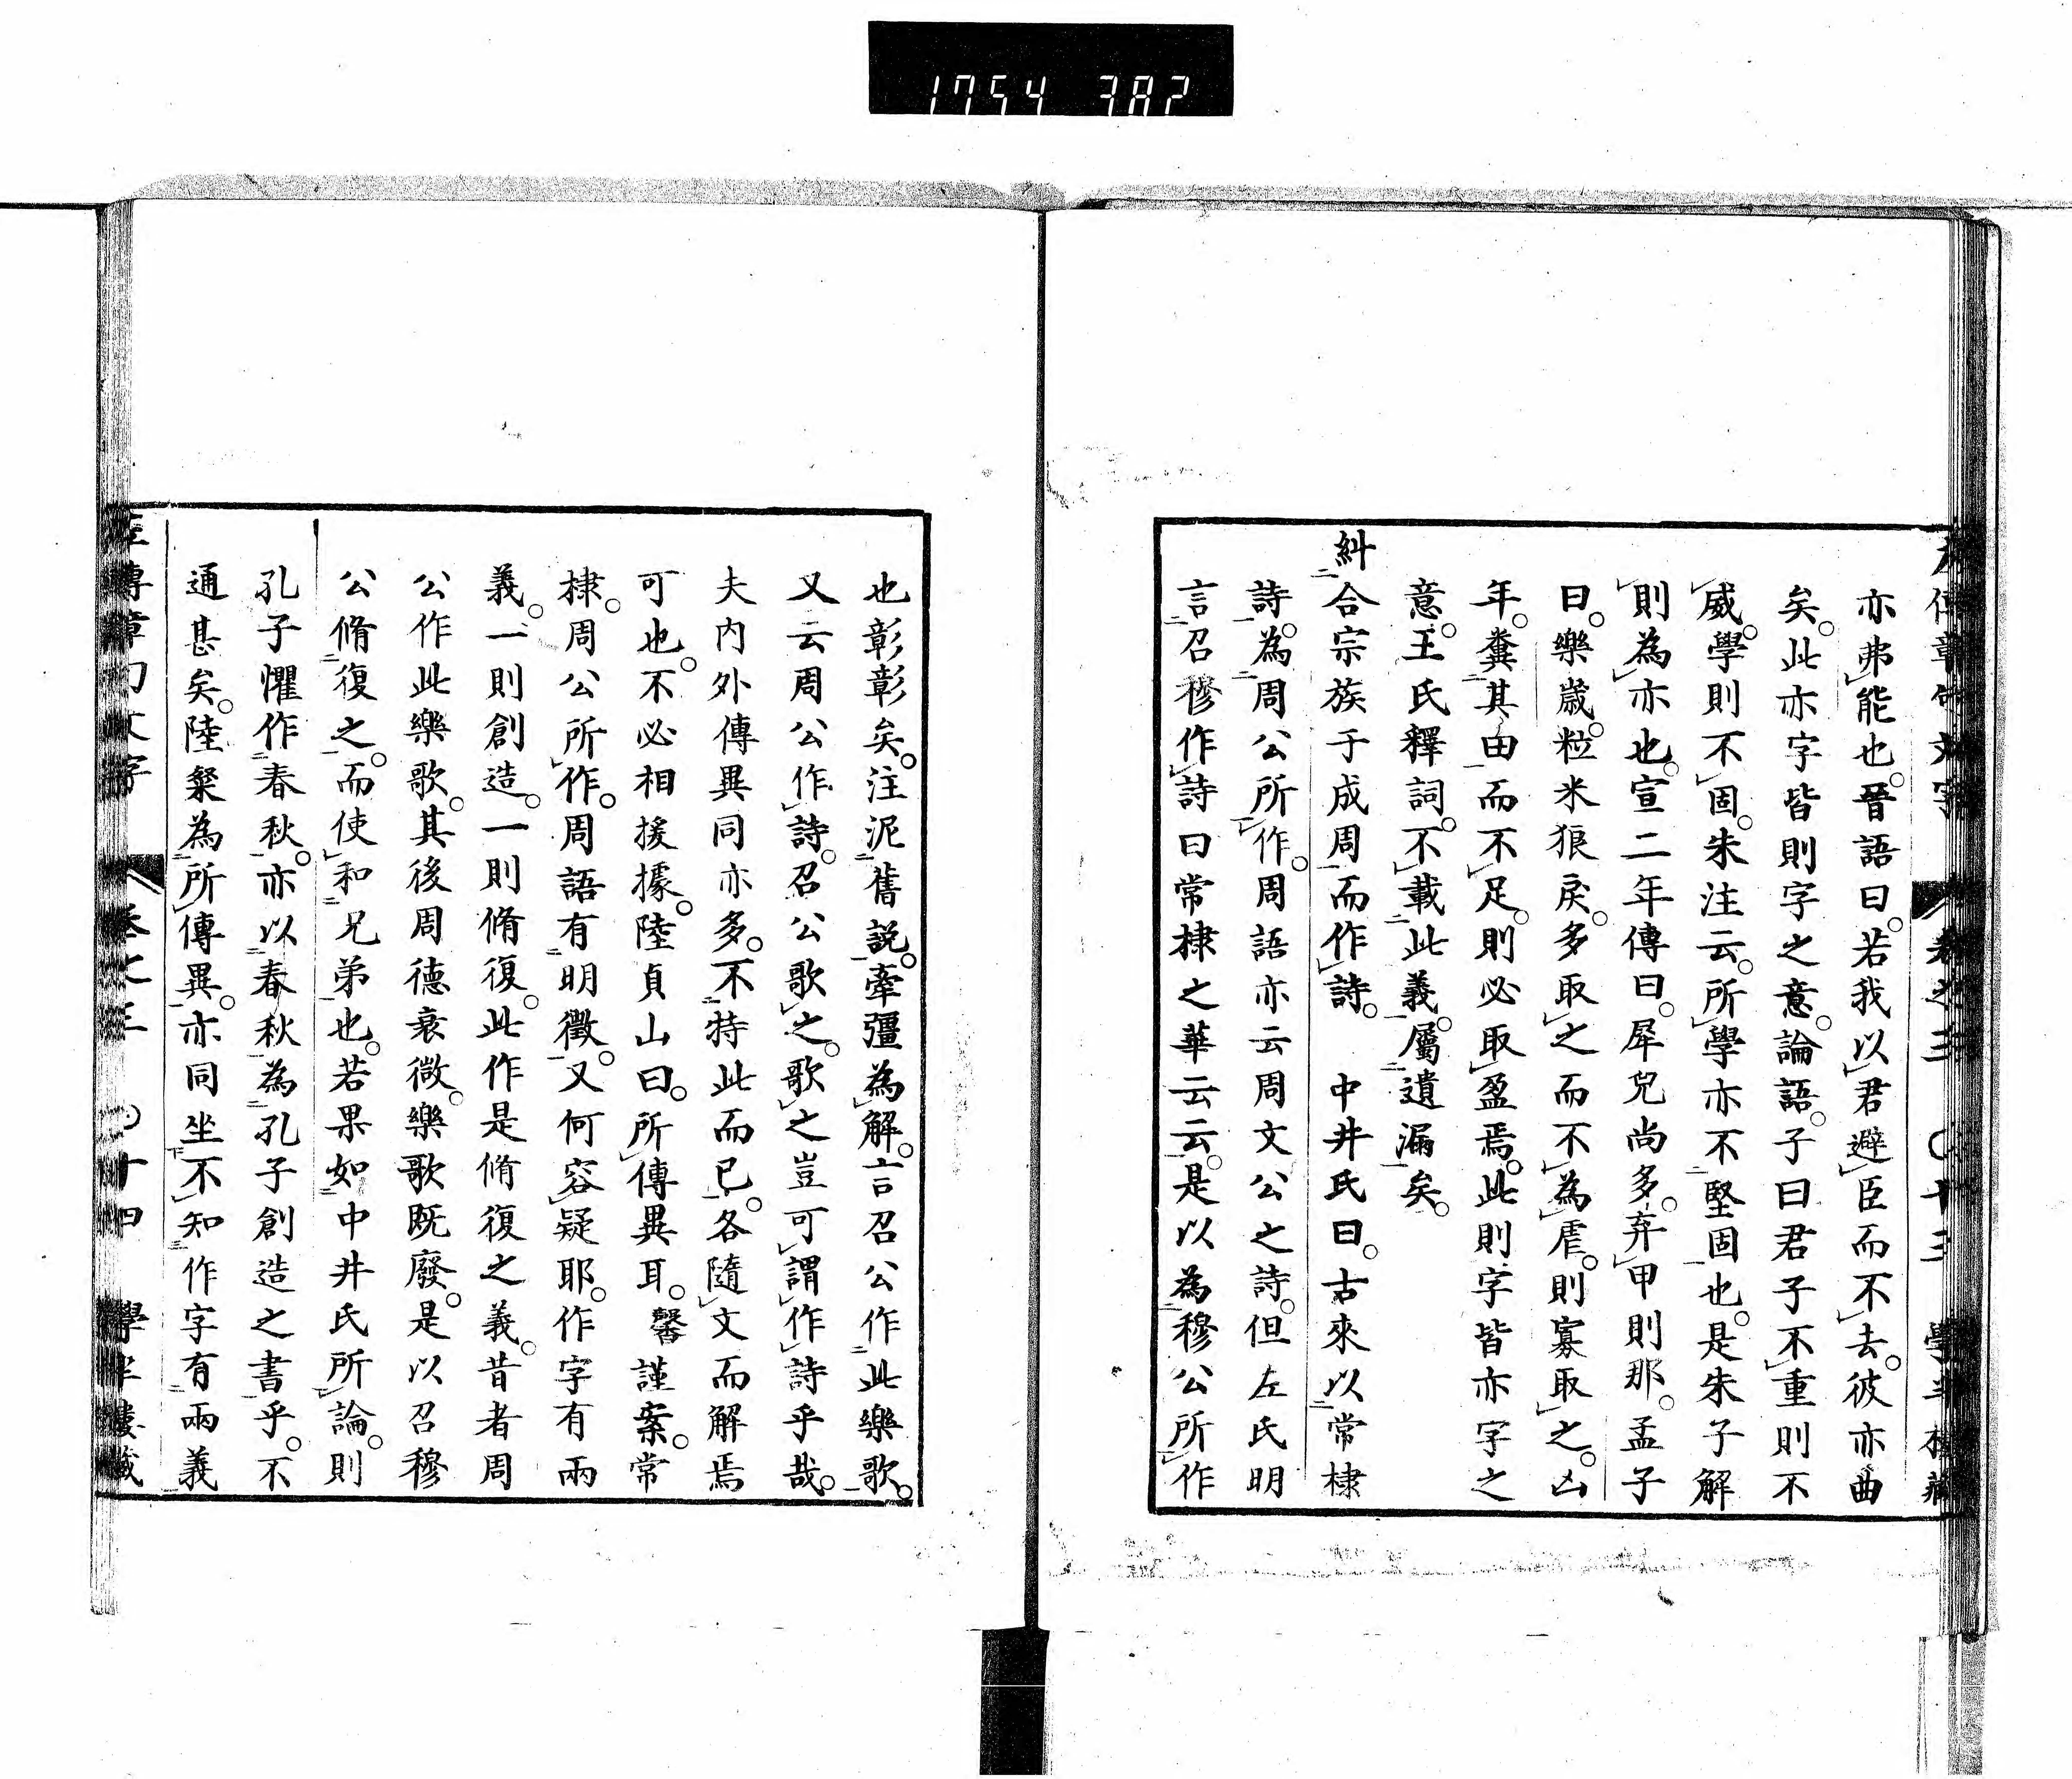 1754 382
左傳章句文字 卷之三 〇十三 學半樓藏
亦弗能也。晉語曰。若我以君避臣而不去。彼亦曲
矣。此亦字皆則字之意。論語。子曰君子不重則不
威。學則不固。朱注云。所學亦不堅固也。是朱子解
則為亦也。宣二年傳曰。犀兕尚多。弃甲則那。孟子
曰。樂歲。粒米狼戾。多取之而不為虐。則寡取之。凶
年。糞其田而不足。則必取盈焉。此則字皆亦字之
意。王氏釋詞。不載此義。屬遺漏矣。
糾合宗族于成周而作詩。 中井氏曰。古來以常棣
詩。為周公所作。周語亦云周文公之詩。但左氏明
言召穆作詩曰常棣之華云云。是以為穆公所作
也彰彰矣。注泥舊說。牽彊為解。言召公作此樂歌。
又云周公作詩。召公歌之。歌之豈可謂作詩乎哉。
夫內外傳異同亦多。不特此而已。各隨文而解焉
可也。不必相援據。陸貞山曰。所傳異耳。馨謹案。常
棣。周公所作。周語有明徵。又何容疑耶。作字有兩
義。一則創造。一則脩復。此作是脩復之義。昔者周
公作此樂歌。其後周德衰微。樂歌既廢。是以召穆
公脩復之。而使和兄弟也。若果如中井氏所論。則
孔子懼作春秋。亦以春秋為孔子創造之書乎。不
通甚矣。陸粲為所傳異。亦同坐不知作字有兩義
左傳章句文字 卷之三 〇十四 學半樓藏